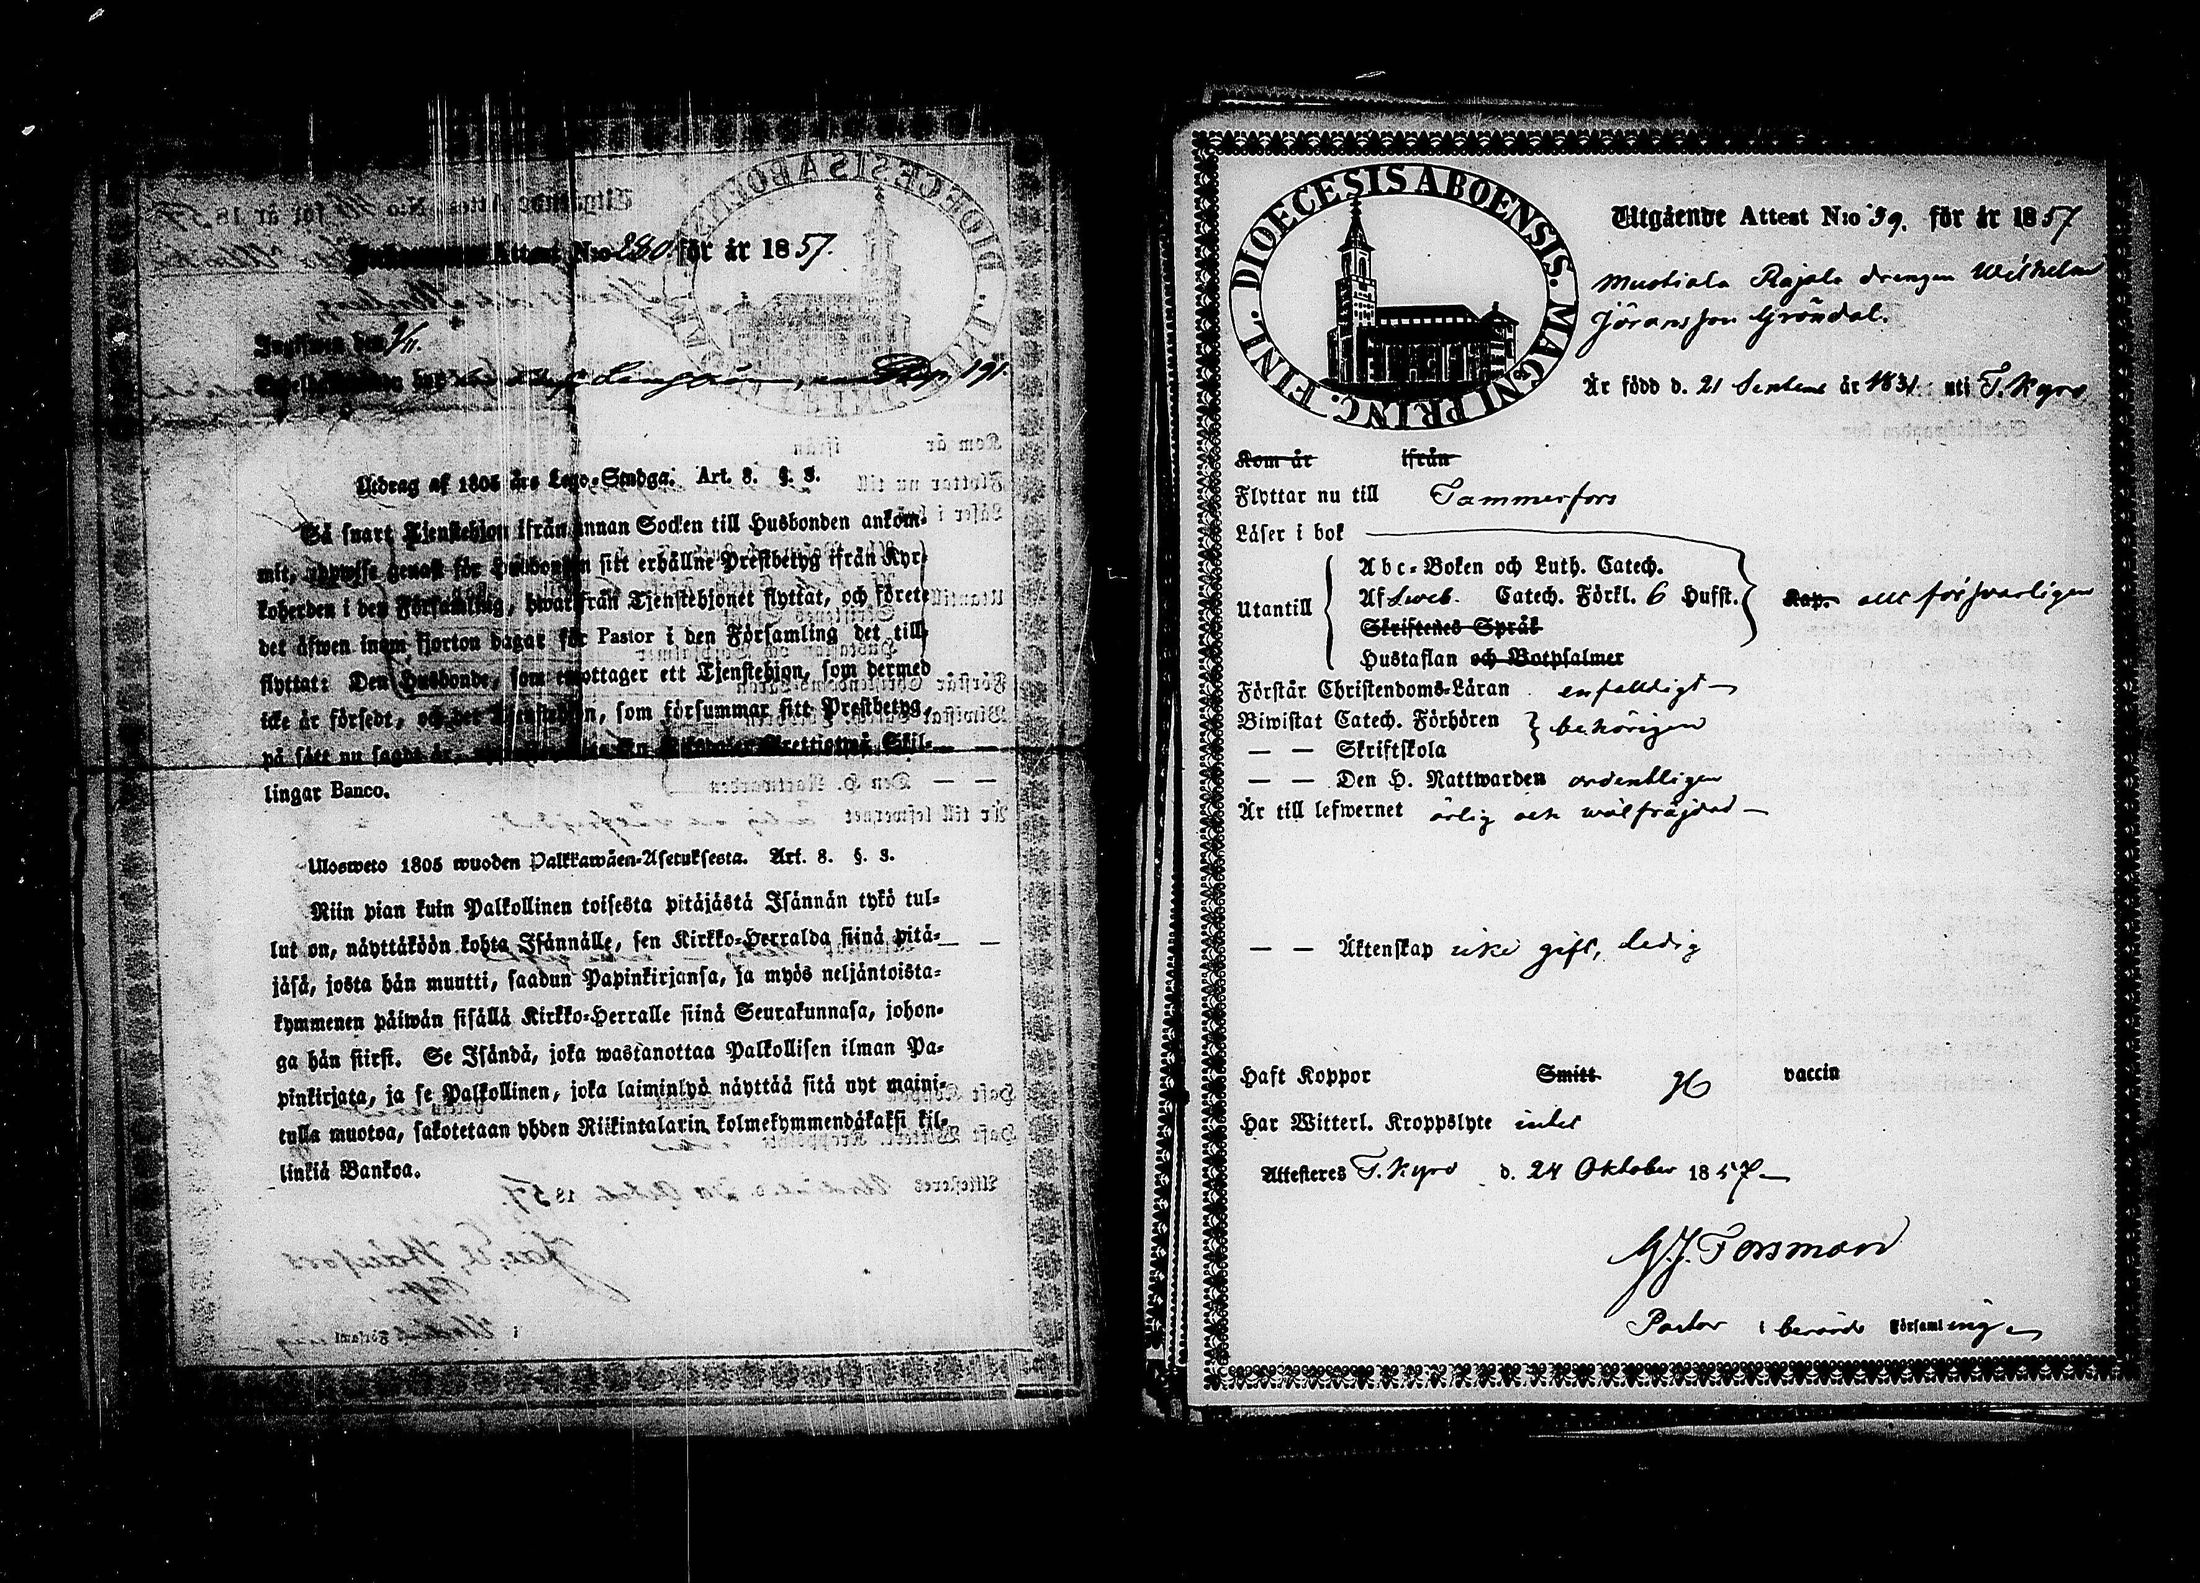 Attest N:o 280. för år 1857.
Ingifwen den 9/11.
Utdrag af 1805 års Lego-Stadga. Art. 8. §. 3.
Så snart Tjenstehjon ifrån annan Socken till Husbonden ankom-
mit, uppwise genast för Husbonden sitt erhållne Prestbetyg ifrån Kyr-
koherden i den Församling, hwarifrån Tjenstehjonet flyttat, och förete
det äfwen inom fjorton dagar för Pastor i den Församling det till-
flyttat: Den Husbonde, som emottager ett Tjenstehjon, som dermed
icke är försedt, och det Tjenstehjon, som försummar sitt Prestbetyg,
på sätt nu sagdt är, En Riksdaler Trettiotwå Skil-
lingar Banco.
Ulosweto 1805 wuoden Palkkawäen-Asetuksesta. Art. 8. §. 3.
Niin pian kuin Palkollinen toisesta pitäjästä Isännän tykö tul-
lut on, näyttäköön kohta Isännälle, sen Kirkko-Herralda siinä pitä-
jäsä, josta hän muutti, saadun Papinkirjansa, ja myös neljäntoista-
kymmenen päiwän sisällä Kirkko-Herralle siinä Seurakunnasa, johon-
ga hän siirst. Se Isändä, joka wastanottaa Palkollisen ilman Pa-
pinkirjata, ja se Palkollinen, joka laiminlyö näyttää sitä nyt maini-
tulla muotoa, sakotetaan yhden Riikintalarin kolmekymmendäkaksi kil-
linkiä Bankoa.
DIOECESIS ABOENSIS. MAGNI PRINC. FINL.
Utgående Attest N:o 39. för år 1857
Mustiala Rajala drengen Wilhelm
Jöransson Gröndal.
Är född d. 21 Septemb år 1831 uti T. Kyro
Kom år ifrån
Flyttar nu till Tammerfors
Läser i bok
Utantill
Abc-Boken och Luth. Catech.
Af Sweb. Catech. Förkl. 6 Hufst. Kap. allt försvarligen
Skriftenes Språk
Hustaflan och Botpsalmer
Förstår Christendoms-Läran enfalldigt
Biwistat Catech. Förhören behörigen
— — Skriftskola
— — Den H. Nattwarden ordentligen
Är till lefwernet ärlig och wälfräjdad
— — Äktenskap icke gift, ledig
Haft Koppor Smitt vaccin
Har Witterl. Kroppslyte intet
Attesteres T. Kyro d. 24 Oktober 1857
G. J. Forsman
Pastor i berörde Församling